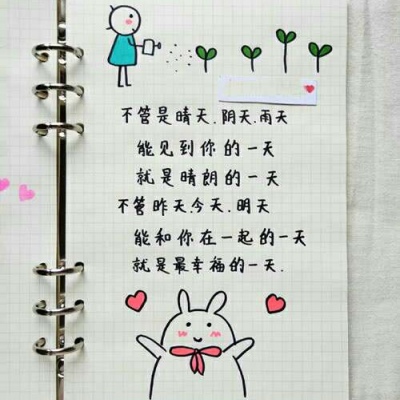 不管是晴天.阴天.雨天
能见到你的一天
就是晴朗的一天
不管昨天.今天.明天
能和你在一起的一天
就是最幸福的一天.